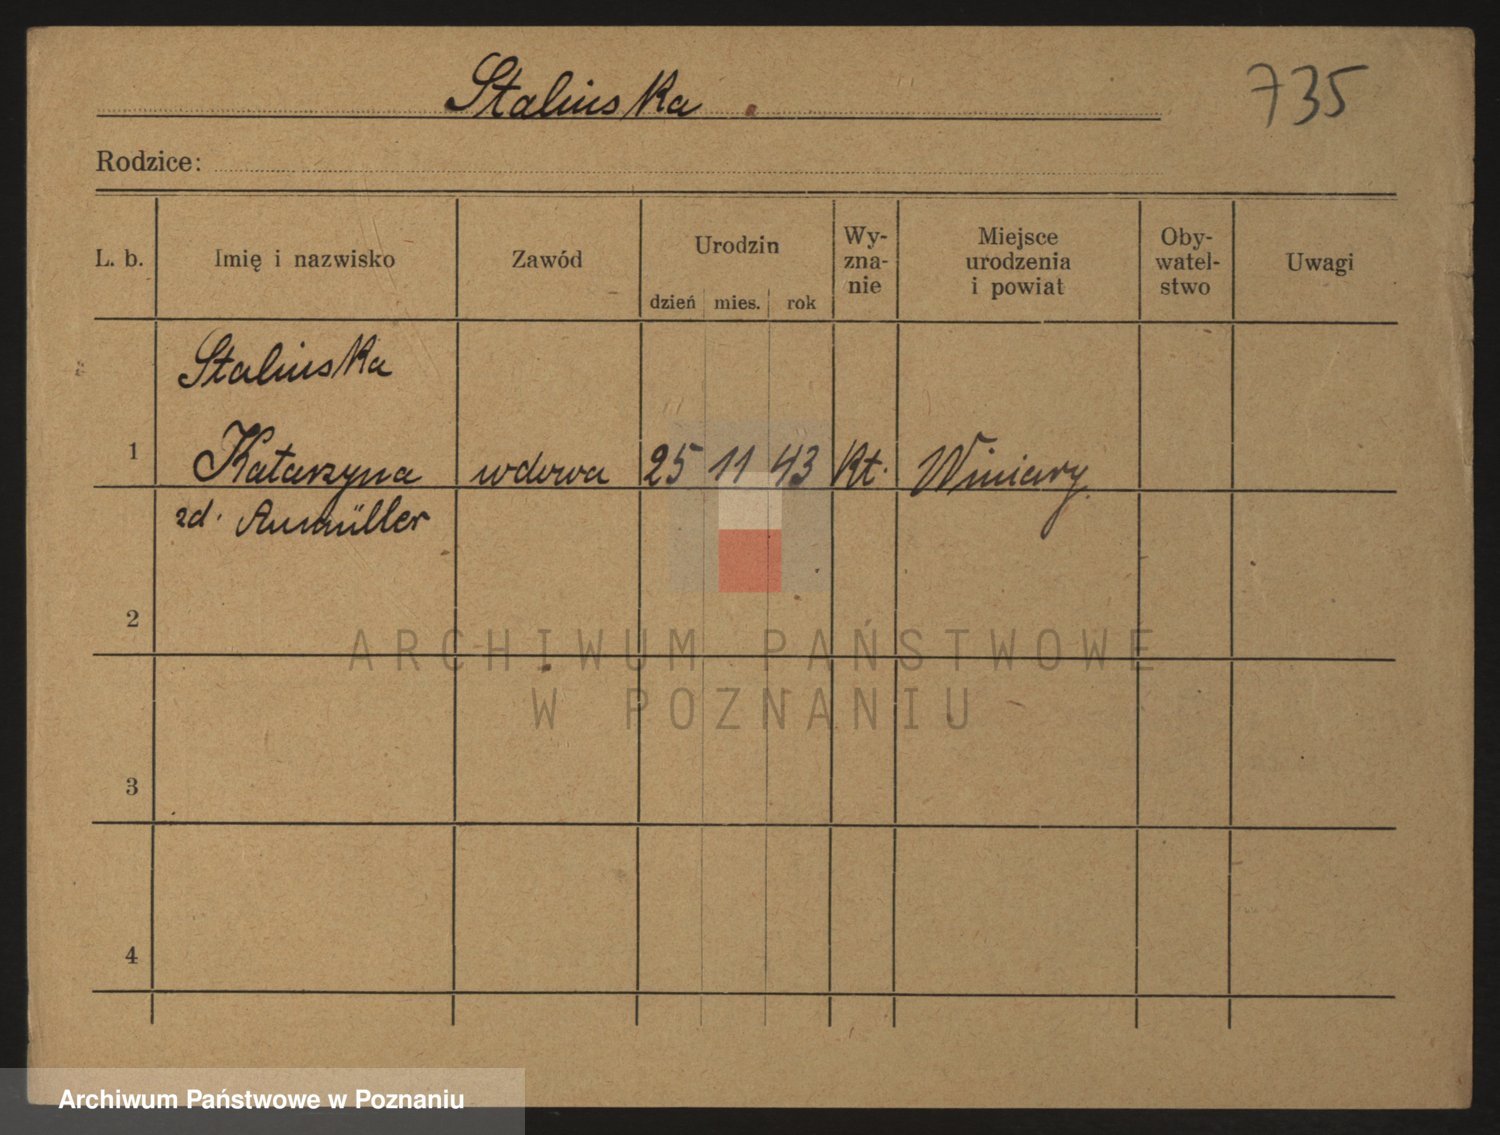 Stalinska
735
Rodzice:
L. b.
Imię i nazwisko
Zawód
Urodzin
dzień mies. rok
Wy-
zna-
nie
Miejsce
urodzenia
i powiat
Oby-
watel-
stwo
Uwagi
Stalinska
1 Katarzyna wdowa 25 11 43 Kt. Winiary
zd.
2
3
4
ARCHIWUM PAŃSTWOWE
W POZNANIU
Archiwum Państwowe w Poznaniu